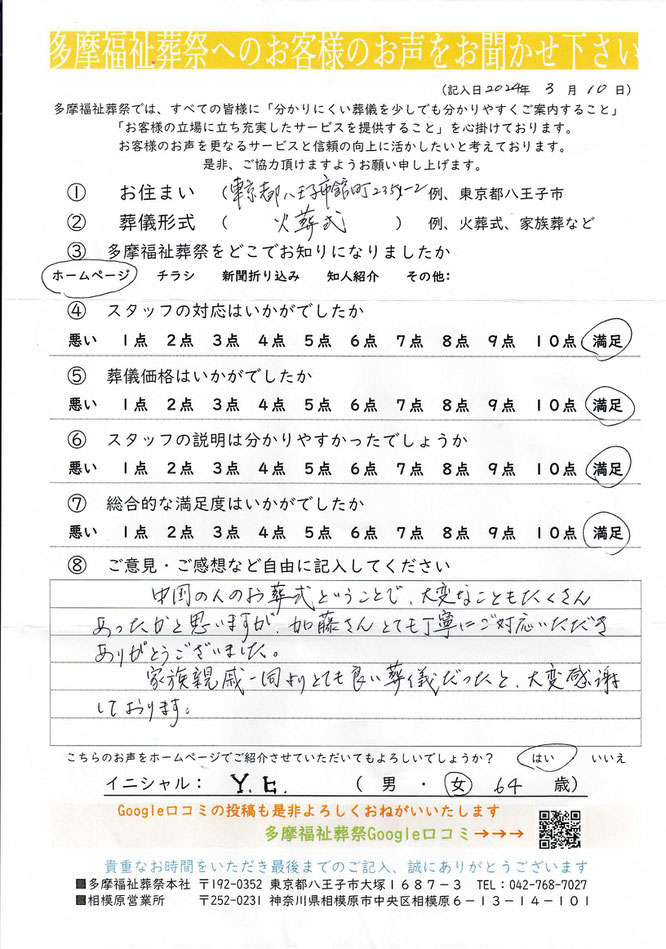 多摩福祉葬祭へのお客様のお声をお聞かせ下さい
(記入日2024年 3 月 10 日)
多摩福祉葬祭では、すべての皆様に「分かりにくい葬儀を少しでも分かりやすくご案内すること」
「お客様の立場に立ち充実したサービスを提供すること」を心掛けております。
お客様のお声を更なるサービスと信頼の向上に活かしたいと考えております。
是非、ご協力頂けますようお願い申し上げます。
① お住まい (東京都八王子市館町2354-2 例、東京都八王子市
② 葬儀形式 ( 火葬式 ) 例、火葬式、家族葬など
③ 多摩福祉葬祭をどこでお知りになりましたか
ホームページ チラシ 新聞折り込み 知人紹介 その他:
④ スタッフの対応はいかがでしたか
悪い 1点 2点 3点 4点 5点 6点 7点 8点 9点 10点 満足
⑤ 葬儀価格はいかがでしたか
悪い 1点 2点 3点 4点 5点 6点 7点 8点 9点 10点 満足
⑥ スタッフの説明は分かりやすかったでしょうか
悪い 1点 2点 3点 4点 5点 6点 7点 8点 9点 10点 満足
⑦ 総合的な満足度はいかがでしたか
悪い 1点 2点 3点 4点 5点 6点 7点 8点 9点 10点 満足
⑧ ご意見・ご感想など自由に記入してください
中国の人のお葬式ということで、大変なこともたくさん
あったかと思いますが、加藤さんとても丁寧にご対応いただき
ありがとうございました。
家族親戚一同よりとても良い葬儀だったと、大変感謝
しております。
こちらのお声をホームページでご紹介させていただいてもよろしいでしょうか? はい いいえ
イニシャル: Y.E. ( 男 ・ 女 64 歳)
Google口コミの投稿も是非よろしくおねがいいたします
多摩福祉葬祭Google口コミ→→→
貴重なお時間をいただき最後までのご記入、誠にありがとうございます
■多摩福祉葬祭本社 〒192-0352 東京都八王子市大塚1687-3 TEL:042-768-7027
■相模原営業所 〒252-0231 神奈川県相模原市中央区相模原6-13-14-101